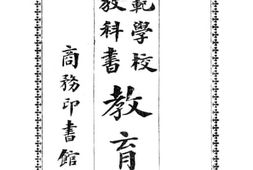 範學校
教科書
教育
商務印書館